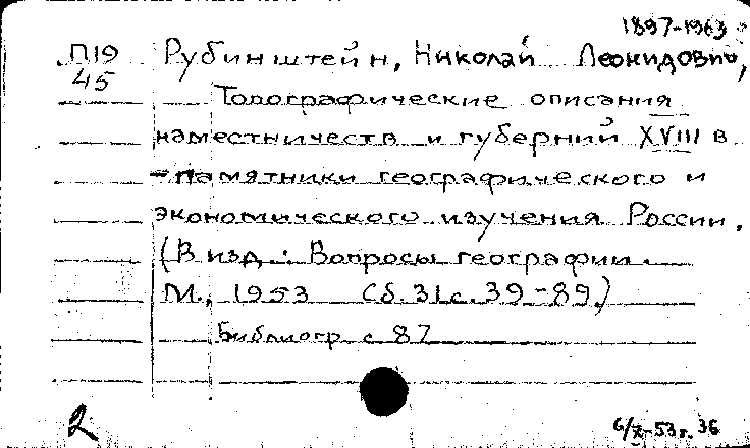 1897-1963
П19 Рубинштейн, Николай Леонидович,
45
Топографические описания
наместничеств и губерний XVIII в
- памятники географического и
экономического изучения России.
(В изд.: Вопросы географии.
М., 1953 Сб. 31 с. 39-89.)
Библиогр с 87
2 6/X-53г. 36